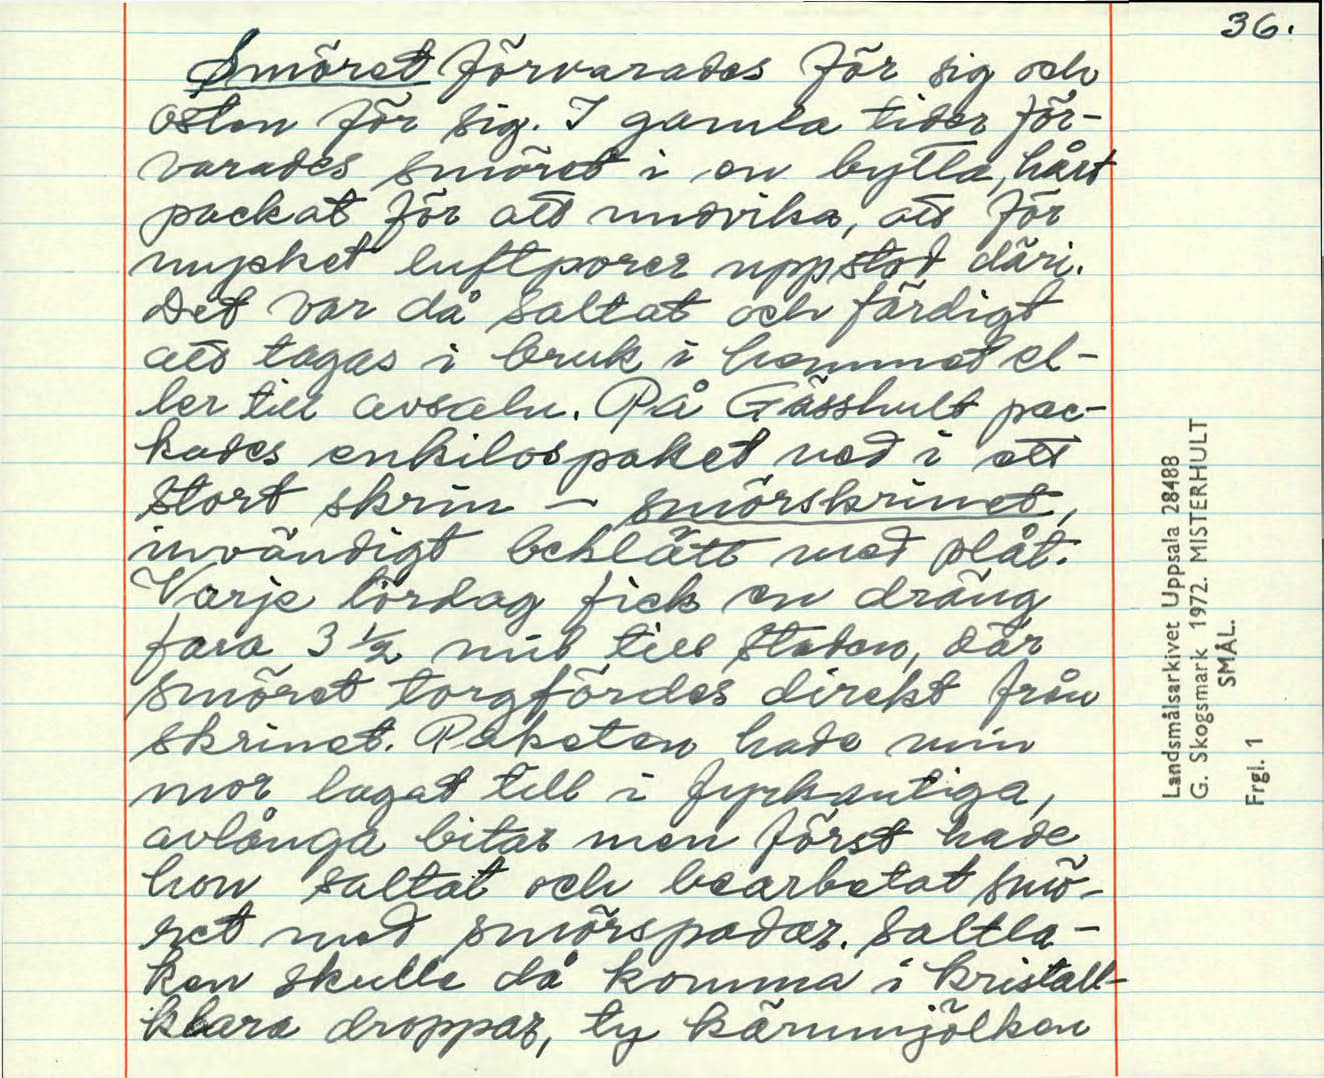 36.
Smöret förvarades för sig och
osten för sig. I gamla tider för-
varades smöret i en bytta, hårt
packat för att undvika, att för
mycket luftporer uppstod däri.
Det var då saltat och färdigt
att tagas i bruk i hemmet el-
ler till avsalu. På Gässhult pac-
kades enkilospaket ned i ett
stort skrin – smörskrinet,
invändigt beklätt med plåt.
Varje lördag fick en dräng
fara 3 ½ mil till staden, där
smöret torgfördes direkt från
skrinet. Paketen hade min
mor lagat till i fyrkantiga,
avlånga bitar men först hade
hon saltat och bearbetat smö-
ret med smörspadar. Saltla-
ken skulle då komma i kristall-
klara droppar, ty kärnmjölken
Landsmålsarkivet Uppsala 28488
G. Skogsmark 1972. MISTERHULT
SMÅL.
Frgl. 1